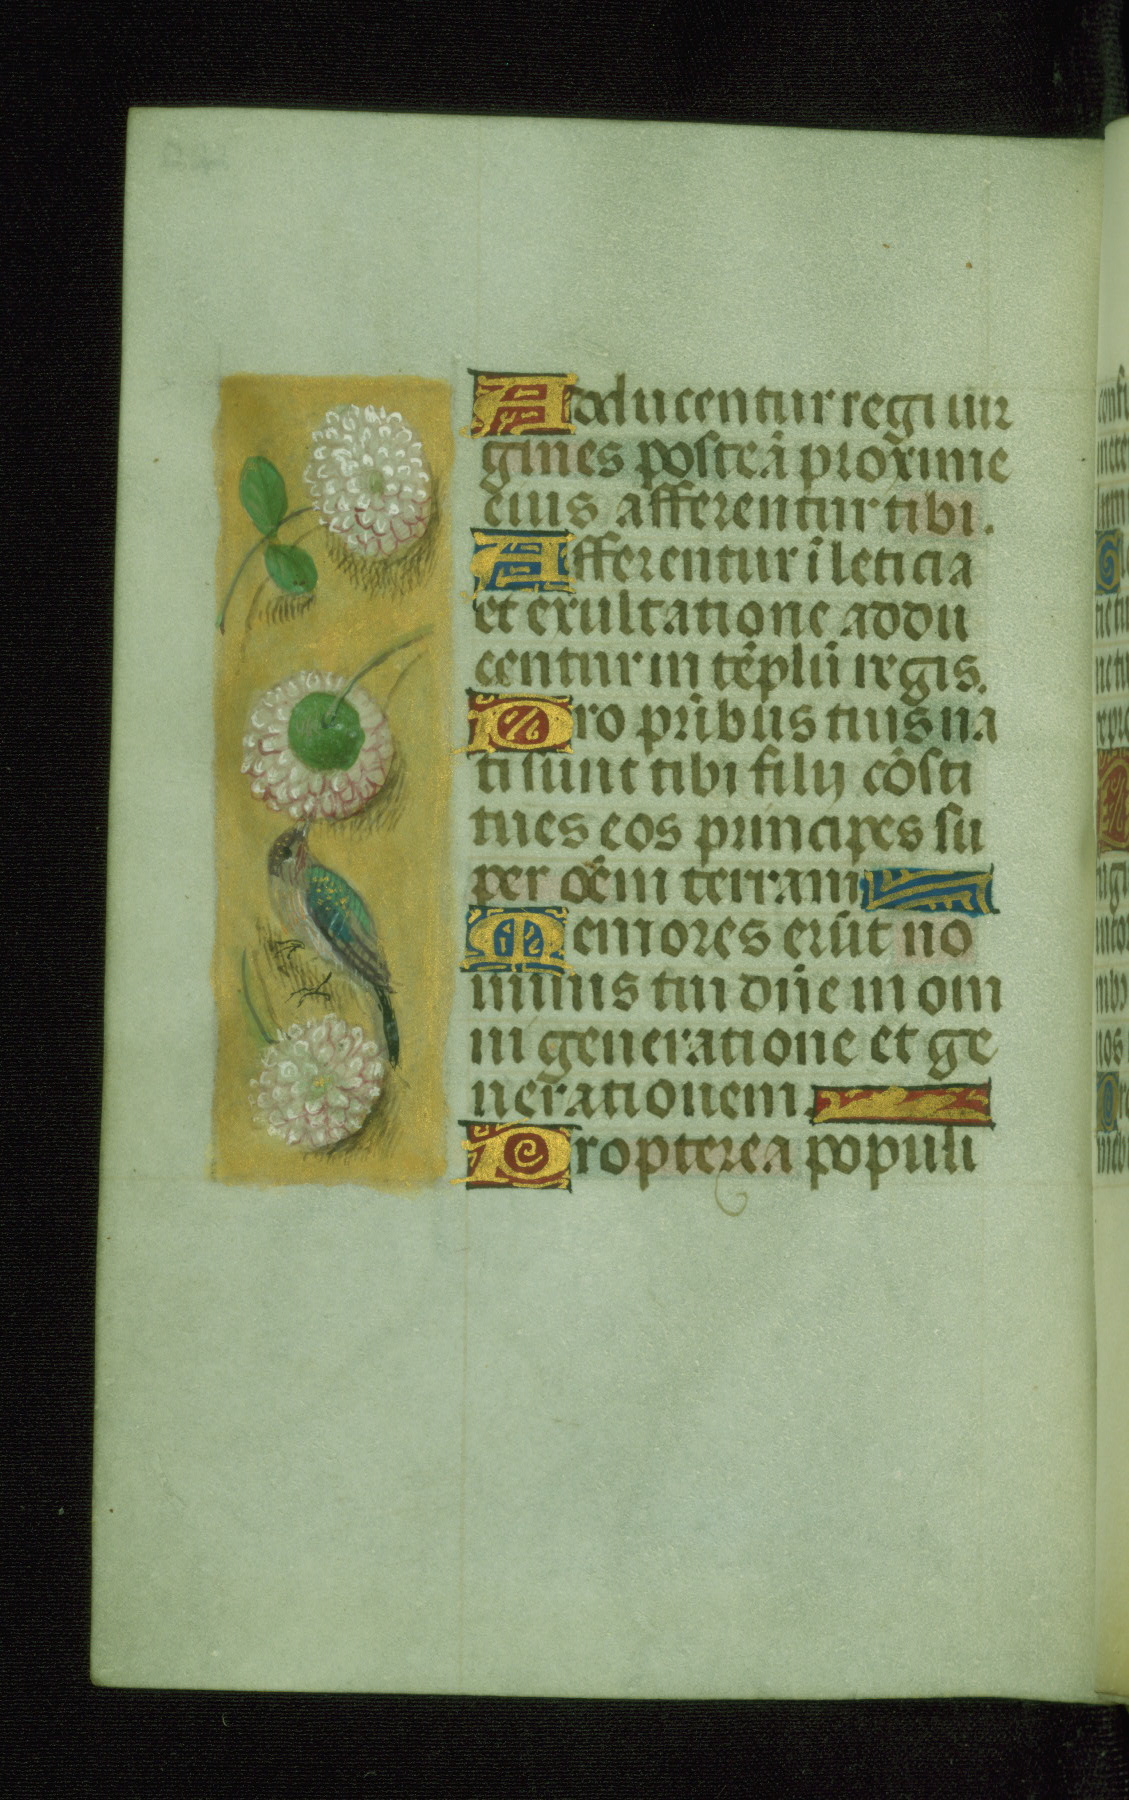 Adducentur regi uir
gines post eā proxime
eius afferentur tibi.
Afferentur ī leticia
et exultatione addu
centur in tēplū regis.
Pro pr̄ibus tuis na
ti sunt tibi filij cōsti
tues eos principes su
per oēm terram
Memores erūt no
minis tui dn̄e in om
ni generatione et ge
nerationem.
Propterea populi